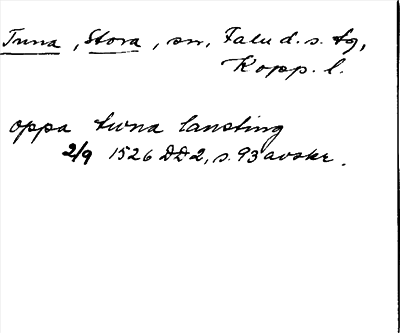 Tuna, Stora, sn, Falu d. s. tg,
Kopp. l.
oppa twna lansting
2/9 1526 DD2, s. 93 avskr.